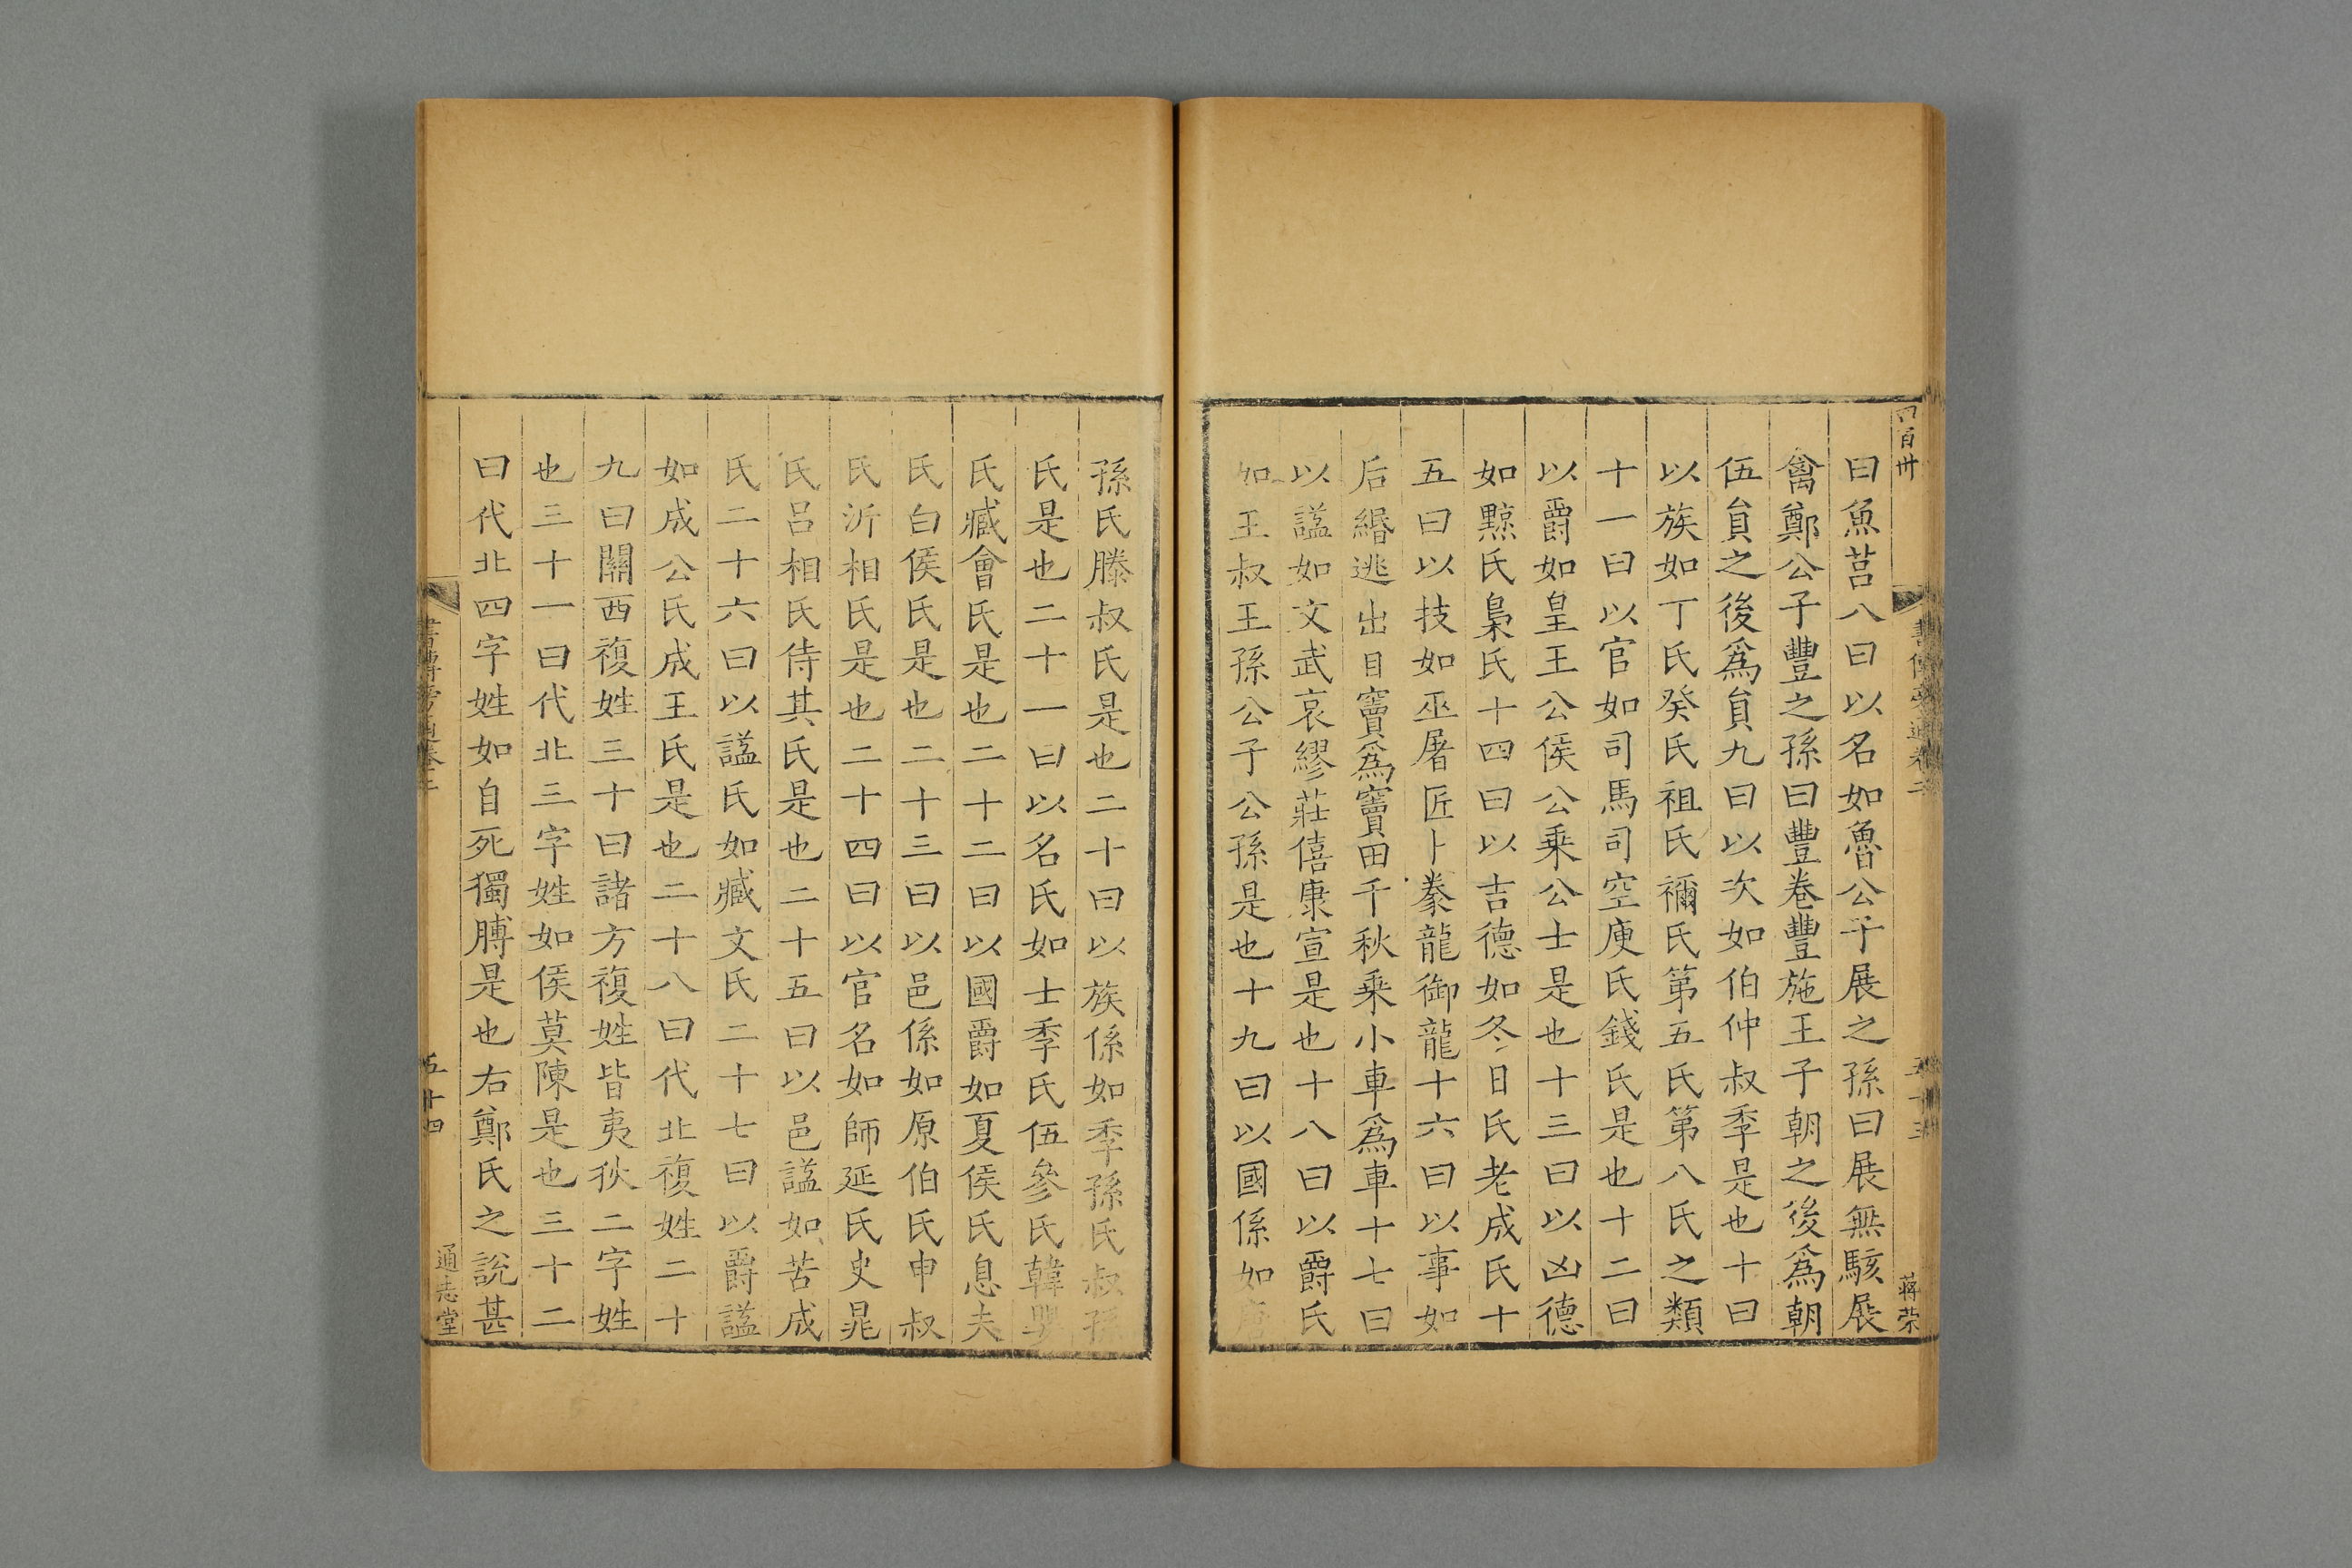 曰魚莒八曰以名如魯公子展之孫曰展無駭展
禽鄭公子豐之孫曰豐卷豐施王子朝之後爲朝
伍貟之後爲貟九曰以次如伯仲叔季是也十曰
以族如丁氏癸氏祖氏禰氏第五氏第八氏之類
十一曰以官如司馬司空庾氏錢氏是也十二曰
以爵如皇王公侯公乗公士是也十三曰以凶德
如黥氏梟氏十四曰以吉德如冬日氏老成氏十
五曰以技如巫屠匠卜豢龍御龍十六曰以事如
后緡逃出自竇爲竇田千秋乗小車爲車十七曰
以謚如文武哀繆莊僖康宣是也十八曰以爵氏
如王叔王孫公子公孫是也十九曰以國係如
孫氏滕叔氏是也二十曰以族係如季孫氏叔孫
氏是也二十一曰以名氏如士季氏伍參氏韓嬰
氏臧會氏是也二十二曰以國爵如夏侯氏息夫
氏白侯氏是也二十三曰以邑係如原伯氏申叔
氏沂相氏是也二十四曰以官名如師延氏史晁
氏吕相氏侍其氏是也二十五曰以邑謚如苦成
氏二十六曰以謚氏如臧文氏二十七曰以爵謚
如成公氏成王氏是也二十八曰代北複姓二十
九曰關西複姓三十曰諸方複姓皆夷狄二字姓
也三十一曰代北三字姓如侯莫陳是也三十二
曰代北四字姓如自死獨膊是也右鄭氏之說甚
書傳旁通卷二
五十四
通志堂
四百卅
書傳旁通卷二
五十三
蔣荣